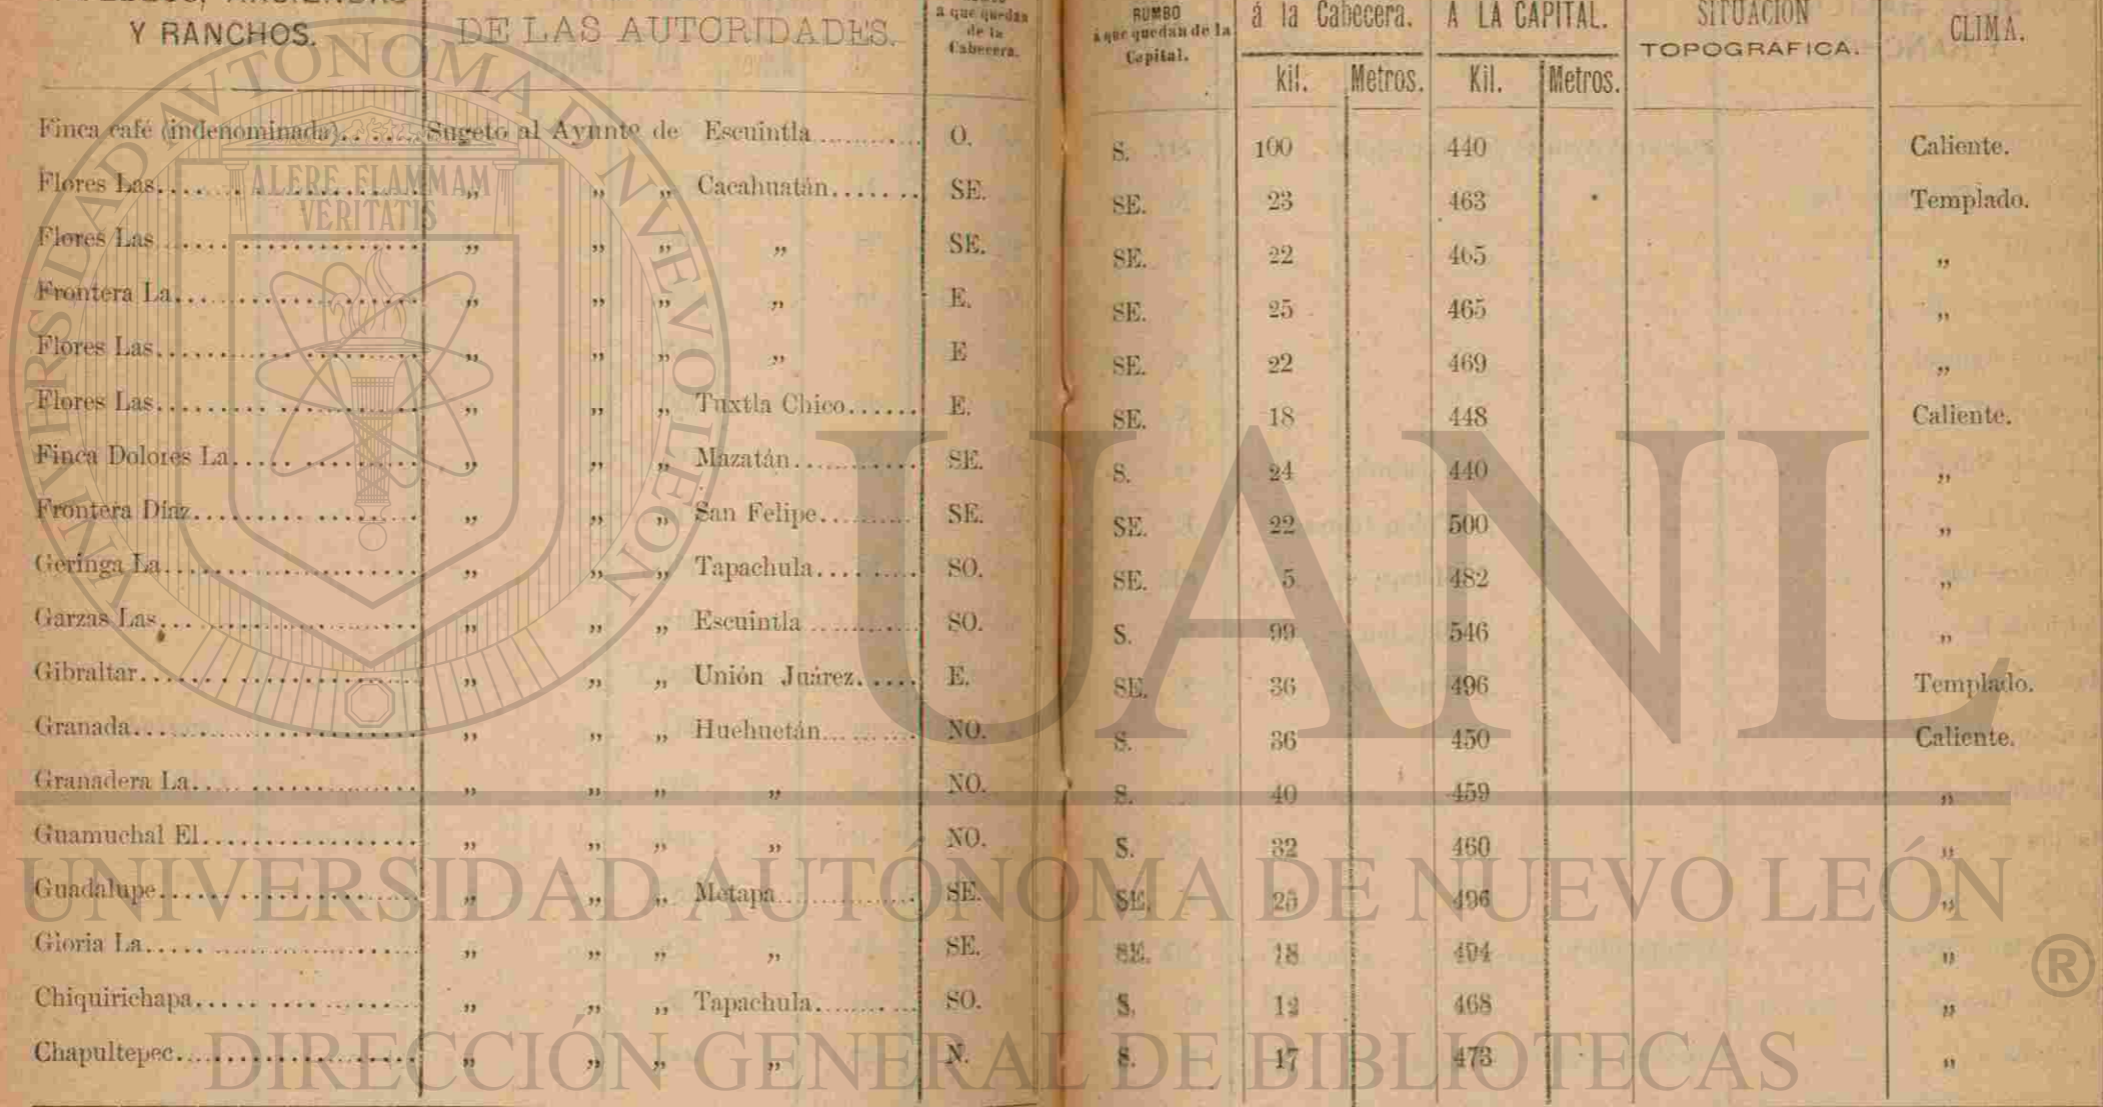 Y RANCHOS. DE LAS AUTORIDADES. á que quedan de la Cabecera. RUMBO á que quedan de la Capital. á la Cabecera. A LA CAPITAL. SITUACION TOPOGRAFICA. CLIMA.
kil. Metros. Kil. Metros.
Finca café (indenominada) Sugeto al Aynntº de Escuintla O. S. 100 440 Caliente.
Flores Las ,, ,, ,, Cacahuatán SE. SE. 23 463 Templado.
Flores Las ,, ,, ,, ,, SE. SE. 22 465 ,,
Frontera La ,, ,, ,, ,, E. SE. 25 465 ,,
Flores Las ,, ,, ,, ,, E SE. 22 469 ,,
Flores Las ,, ,, ,, Tuxtla Chico E. SE. 18 448 Caliente.
Finca Dolores La ,, ,, ,, Mazatán SE. S. 24 440 ,,
Frontera Díaz ,, ,, ,, San Felipe SE. SE. 22 500 ,,
Geringa La ,, ,, ,, Tapachula SO. SE. 5 482 ,,
Garzas Las ,, ,, ,, Escuintla SO. S. 99 546 ,,
Gibraltar ,, ,, ,, Unión Juárez E. SE. 36 496 Templado.
Granada ,, ,, ,, Huehuetán NO. S. 36 450 Caliente.
Granadera La ,, ,, ,, ,, NO. S. 40 459 ,,
Guamuchal El ,, ,, ,, ,, NO. S. 32 460 ,,
Guadalupe ,, ,, ,, Metapa SE. SE. 496 ,,
Gloria La ,, ,, ,, ,, SE. SE. 18 494 ,,
Chiquirichapa ,, ,, ,, Tapachula SO. S. 12 468 ,,
Chapultepec ,, ,, ,, ,, N. S. 17 473 ,,
UNIVERSIDAD AUTONOMA DE NUEVO LEON
ALERE FLAMMAM
VERITATIS
UANL
UNIVERSIDAD AUTÓNOMA DE NUEVO LEÓN
®
DIRECCIÓN GENERAL DE BIBLIOTECAS